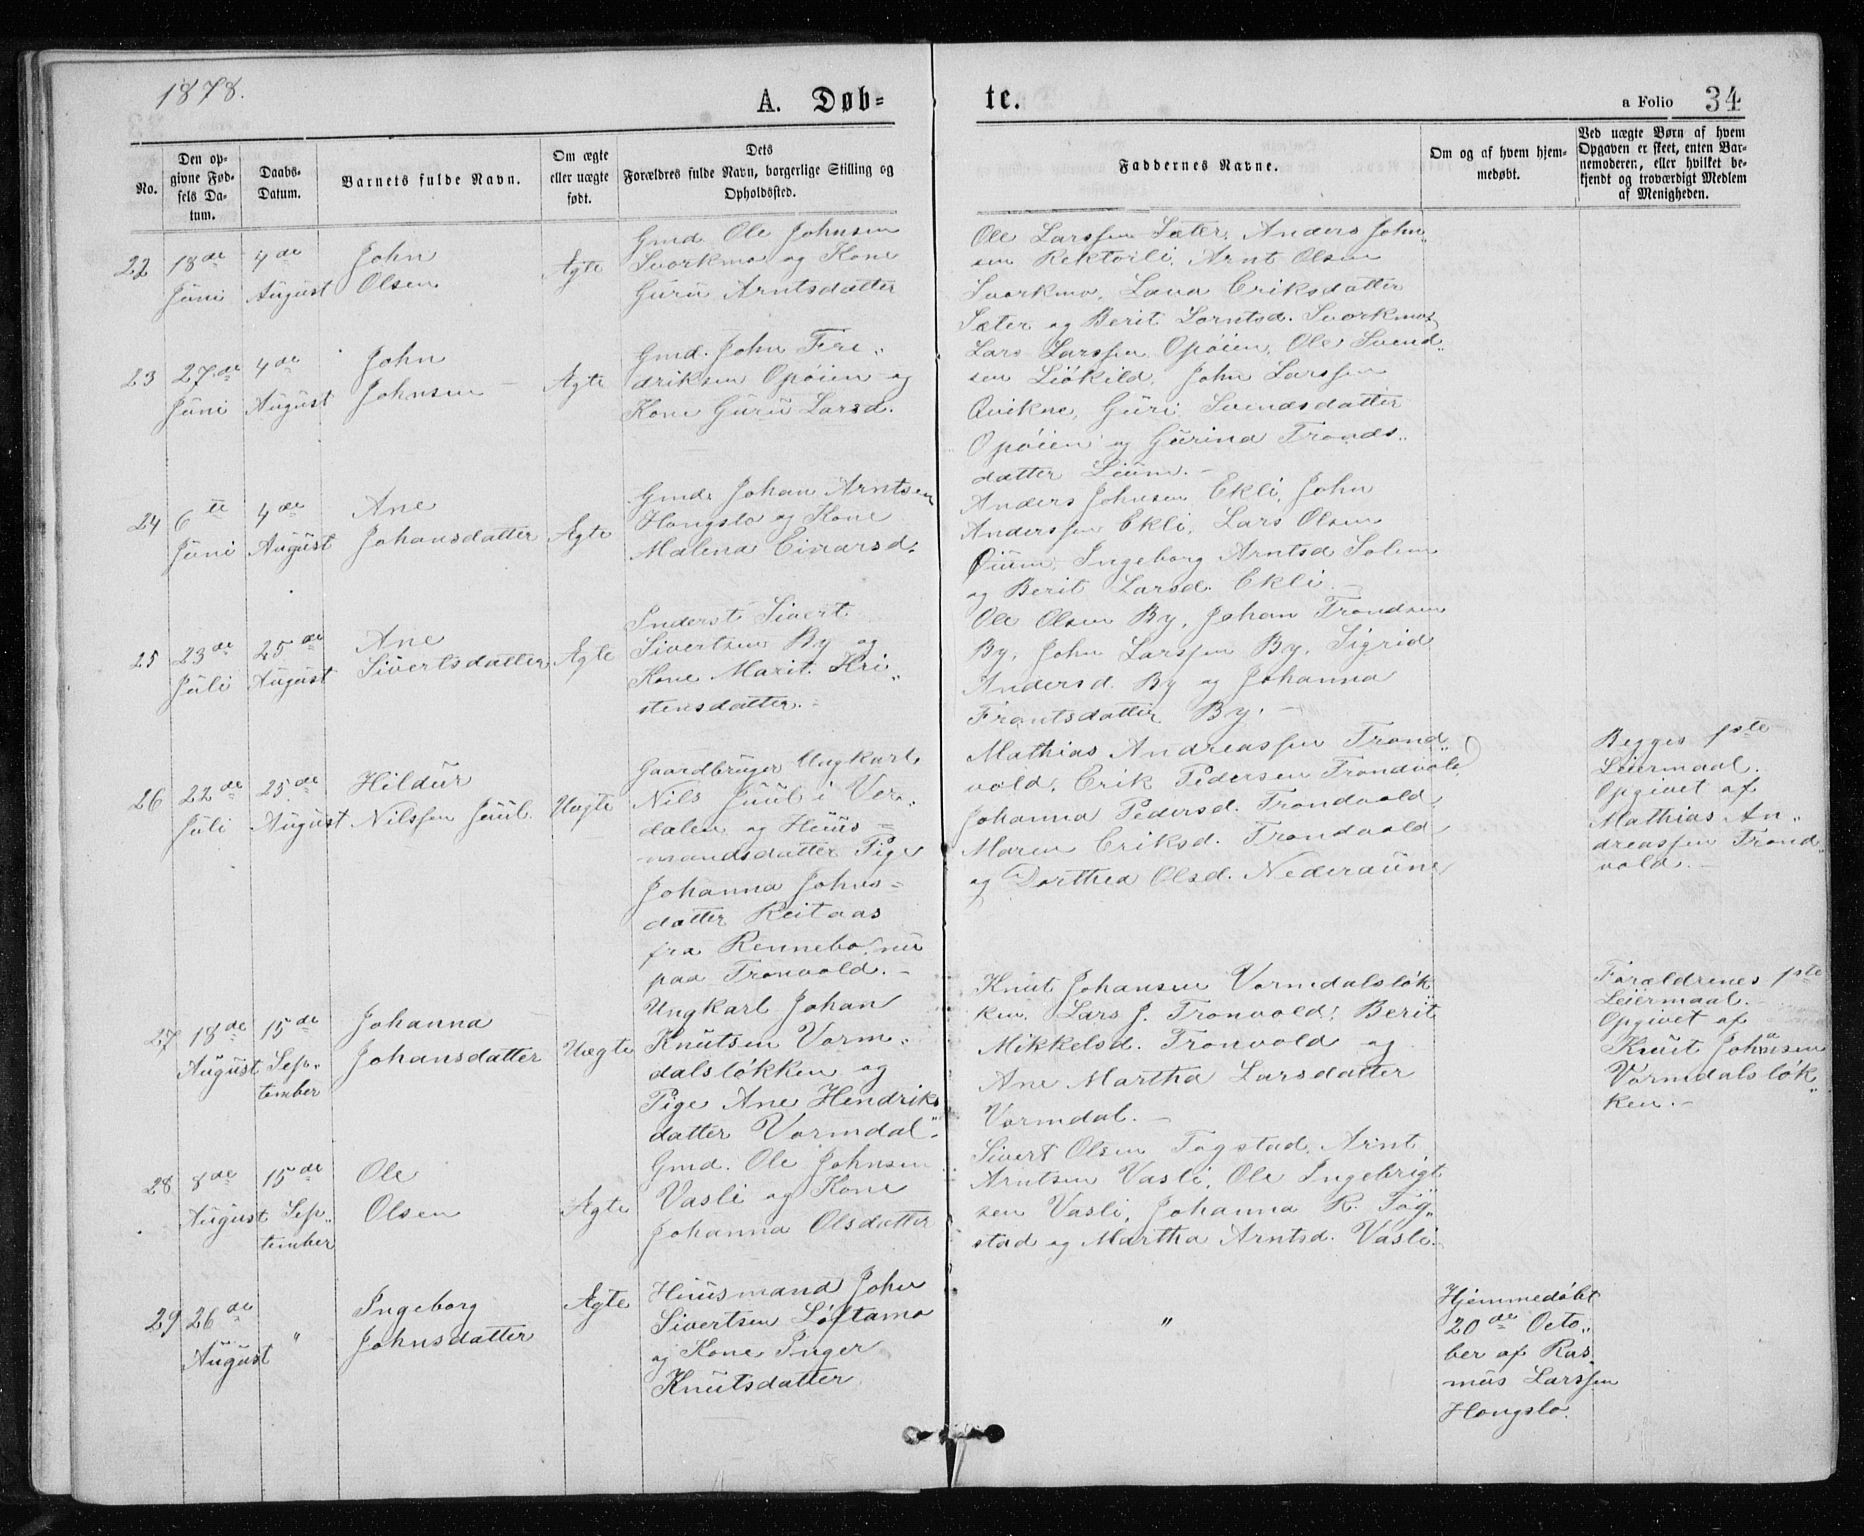 1878.
A. Døb=
te.
a Folio 34
No.
Den op-
givne Fød-
sels Da-
tum.
Daabs-
Datum.
Barnets fulde Navn.
Om ægte
eller uægte
født.
Dets
Forældres fulde Navn, borgerlige Stilling og
Opholdssted.
Faddernes Navne.
Om og af hvem hjem-
medøbt.
Ved uægte Børn af hvem
Opgaven er skeet, enten Bar-
nemoderen, eller hvilket be-
kjendt og troværdigt Medlem
af Menigheden.
22
18de
Juni
4de
August
John
Olsen
Ægte
Gmd. Ole Johnsen
Svorkmo og Kone
Guru Arntsdatter
Ole Larssen Sæter, Anders John„
sen Rektorli, Arnt Olsen
Svorkmo, Lava Eriksdatter
Sæter og Berit Larntsd. Svorkmo.
23
27de
Juni
4de
August
John
Johnsen
Ægte
Gmd. John Fre„
driksen Opøien og
Kone Guru Larsd.
Lars Larssen Opøien, Ole Svend„
sen Liøkild, John Larssen
Qvikne, Guri Svendsdatter
Opøien og Gurina Tronds„
datter Lium.-
24
6te
Juni
4de
August
Ane
Johansdatter
Ægte
Gmd. Johan Arntsen
Hongslo og Kone
Malena Einarsd.
Anders Johnsen Ekli, John
Anderssen Ekli, Lars Olsen
Øium, Ingeborg Arntsd Solem
og Berit Larsd. Ekli.-
25
23de
Juli
25de
August
Ane
Sivertsdatter
Ægte
Inderst Sivert
Sivertsen By og
Kone Marit Kri„
stensdatter.-
Ole Olsen By, Johan Trondsen
By, John Larssen By, Sigrid
Andersd. By og Johanna
Frantsdatter By.-
26
22de
Juli
25de
August
Hildur
Nilssen Juul.
Uægte
Gaardbruger Ungkarl
Nils Juul i Vær„
dalen og Huus=
mandsdatter Pige
Johanna Johns=
datter Reitaas
fra Rennebo, nu
paa Tronvold.-
Mathias Andreassen Trond„
vold, Erik Pedersen Trondvold,
Johanna Pedersd. Trondvold,
Maren Eriksd. Trondvold
og Dorthea Olsd. Nederaune
Begges 1ste
Leiermaal.
Opgivet af
Mathias An„
dreassen Trond„
vold.-
27
18de
August
15de
Sep„
tember
Johanna
Johansdatter
Uægte
Ungkarl Johan
Knutsen Vorm„
dalsløkken og
Pige Ane Hendriks„
datter Vormdal.
Knut Johansen Vormdalsløk„
ken, Lars J. Tronvold, Berit
Mikkelsd. Tronvold og
Ane Martha Larsdatter
Vormdal.-
Forældrenes 1ste
Leiermaal.-
Opgivet af
Knut Johansen
Vormdalsløk„
ken.-
28
8de
August
15de
Sep„
tember
Ole
Olsen
Ægte
Gmd. Ole Johnsen
Vasli og Kone
Johanna Olsdatter
Sivert Olsen Fogstad, Arnt
Arntsen Vasli, Ole Ingebrigt„
sen Vasli, Johanna R. Fog„
stad og Martha Arntsd. Vasli.
29
26de
August
„
Ingeborg
Johnsdatter
Ægte
Huusmand John
Sivertsen Løftamo
og Kone Inger
Knutsdatter
„
Hjemmedøbt
20de Octo„
ber af Ras„
mus Larssen
Hongslo.